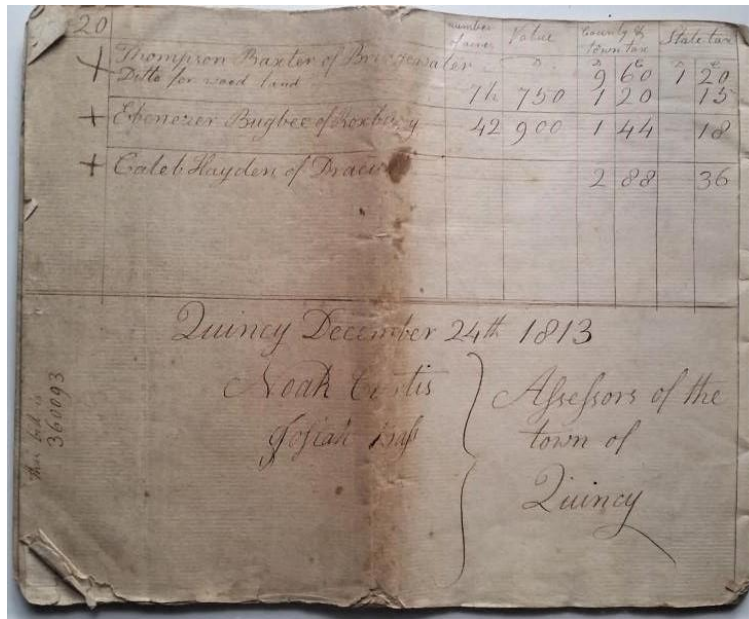 20
number of acres Value County & town tax State tax
D D C D C
+ Thompson Baxter of Bridgewater 9 60 1 20
Ditto for wood land 7½ 750 1 20 15
+ Ebenezer Bugbee of Roxbury 42 900 1 44 18
+ Caleb Hayden of 2 88 36
Quincy December 24th 1813
Noah Curtis
Josiah Baſs
Aſseſsors of the
town of
Quincy
this bill is
360093